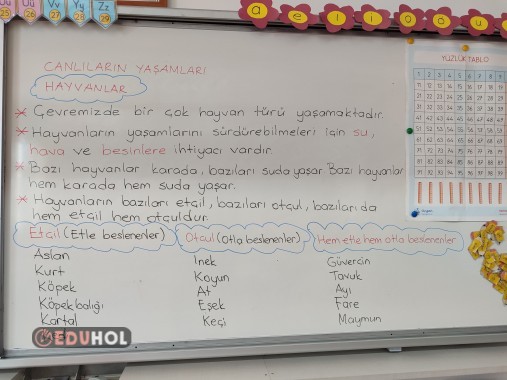 Üü Vv Yy Zz
25 26 27 28 29
a e ı i o ö u
CANLILARIN YAŞAMLARI
HAYVANLAR
YÜZLÜK TABLO
* Çevremizde bir çok hayvan türü yaşamaktadır.
* Hayvanların yaşamlarını sürdürebilmeleri için su,
hava ve besinlere ihtiyacı vardır.
* Bazı hayvanlar karada, bazıları suda yaşar. Bazı hayvanlar
hem karada hem suda yaşar.
* Hayvanların bazıları etçil, bazıları otçul, bazıları da
hem etçil hem otçuldur.
Etçil (Etle beslenenler) Otçul (Otla beslenenler) Hem etle hem otla beslenenler
Aslan İnek Güvercin
Kurt Koyun Tavuk
Köpek At Ayı
Köpekbalığı Eşek Fare
Kartal Keçi Maymun
EDUHOL